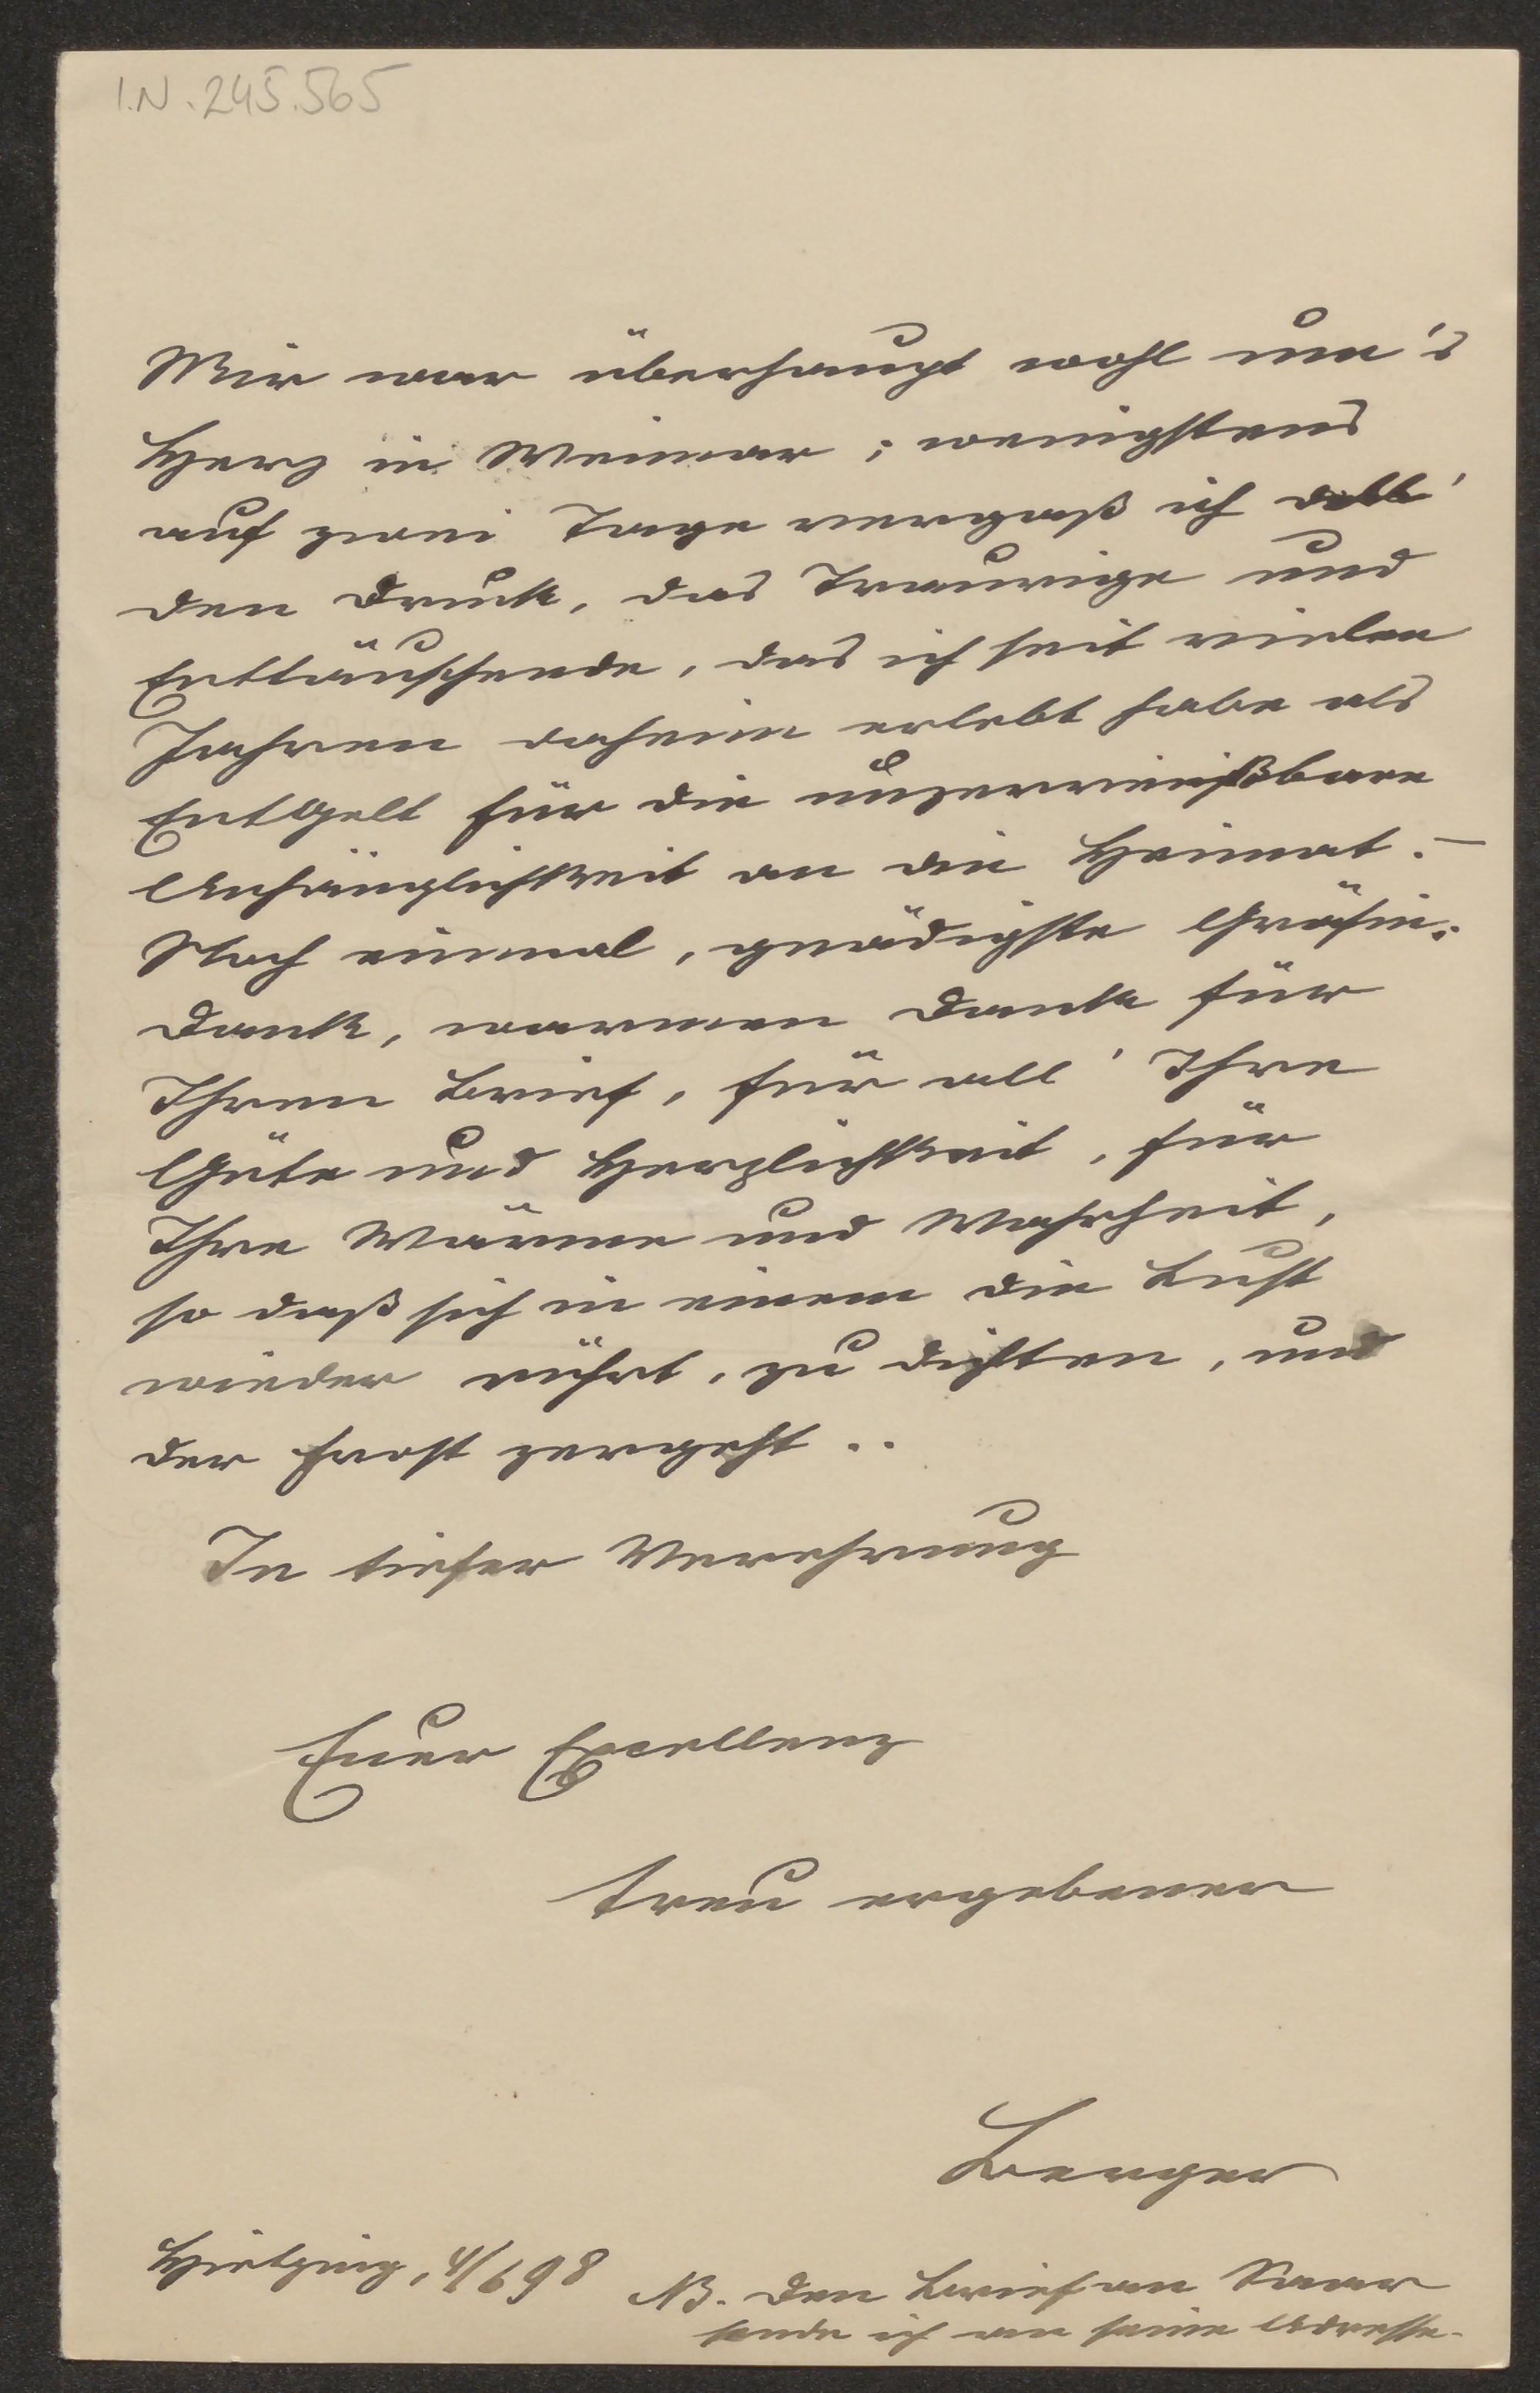 I.N. 245.565
Mir war überhaupt wohl um's
Herz in Weimar; wenigstens
auf zwei Tage vergaß ich all'
den Druck, das Traurige und
Enttäuschende, das ich seit vielen
Jahren daheim erlebt habe als
Entgelt für die unzerreißbare
Anhänglichkeit an die Heimat. –
Noch einmal, gnädigste Gräfin:
Dank, warmen Dank für
Ihren Brief, für all' Ihre
Güte und Herzlichkeit, für
Ihre Wärme und Wahrheit,
so daß sich in einem die Lust
wieder rührt, zu dichten, und
der Frost zergeht..
In tiefer Verehrung
Euer Excellenz
treu ergebener
Berger
Hietzing, 4/6 98
NB. Den Brief an Saar
sende ich an seine Adresse.